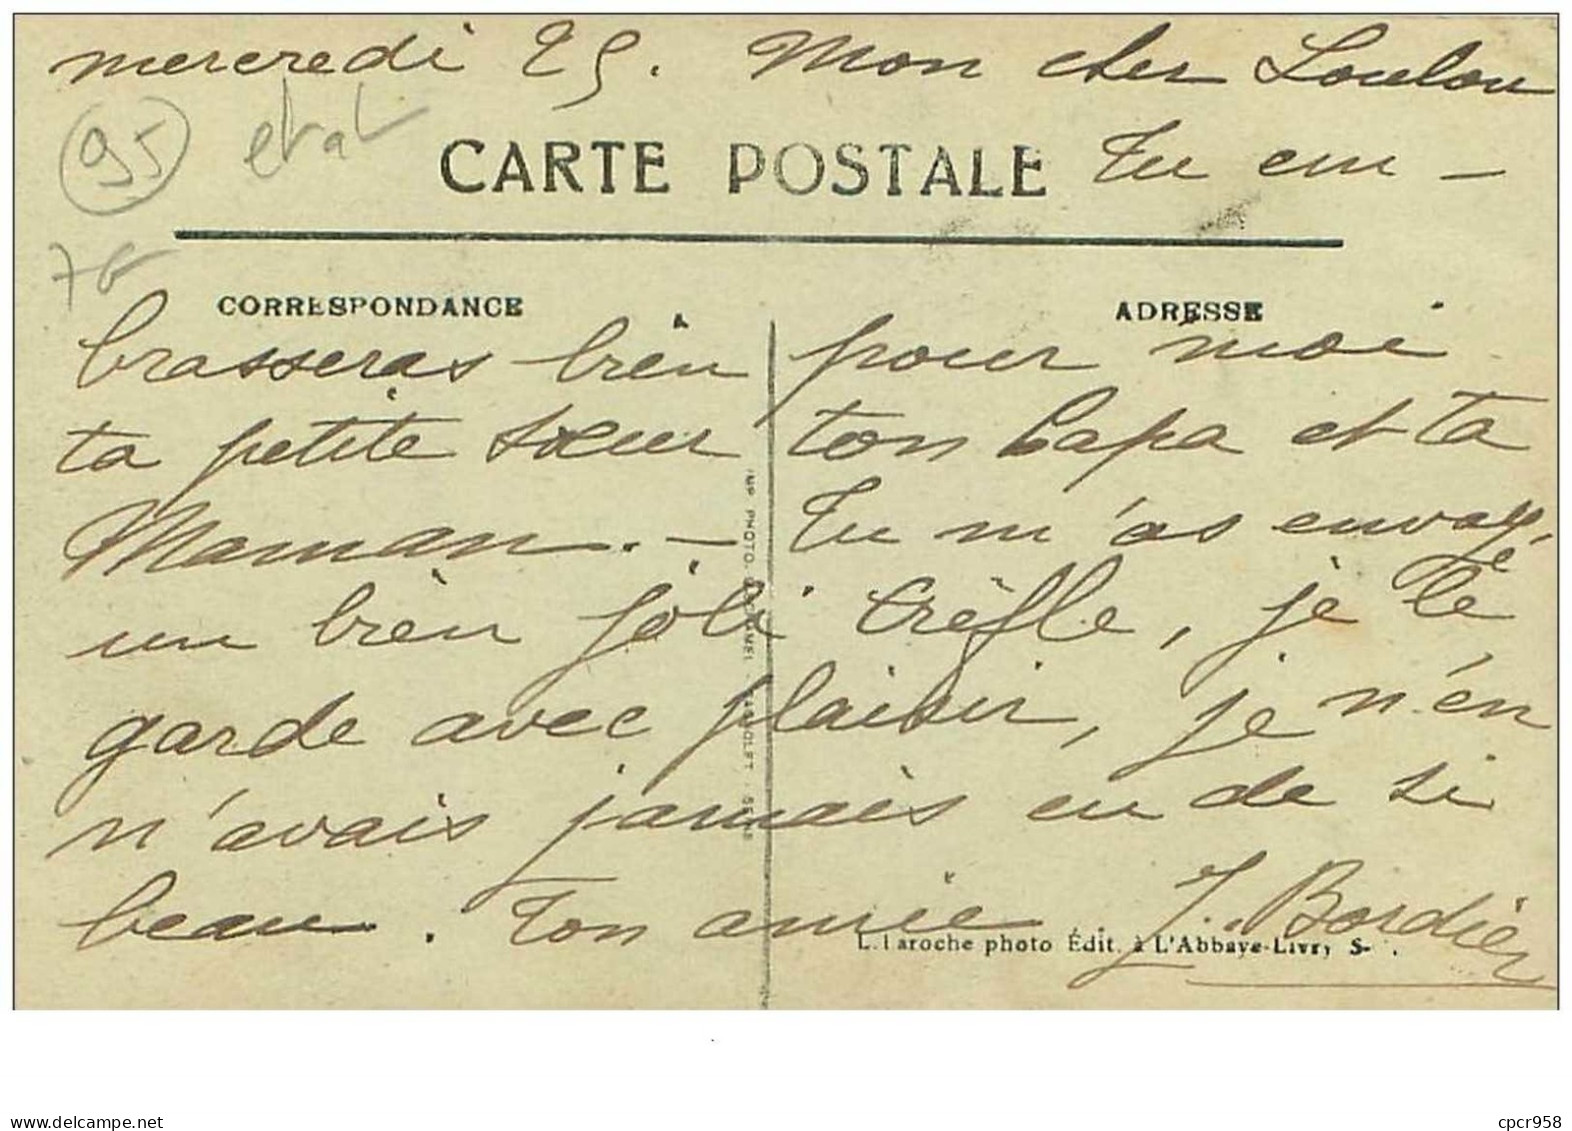 mercredi 25. Mon cher Loulou
95 etat
CARTE POSTALE Tu em-
CORRESPONDANCE ADRESSE
brasseras bien pour moi
ta petite sœur ton Papa et ta
Maman. - Tu m'as envoyé
un bien joli trèfle, je le
garde avec plaisir, je n'en
n'avais jamais eu de si
beau. Ton amie J. Bordier
L. Laroche photo Édit. à L'Abbaye-Livry S-
IMP PHOTO
www.delcampe.net cpcr958